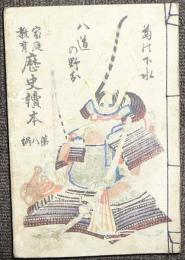 菊の下水
八道の野分
家庭教育
歴史讀本
第八編